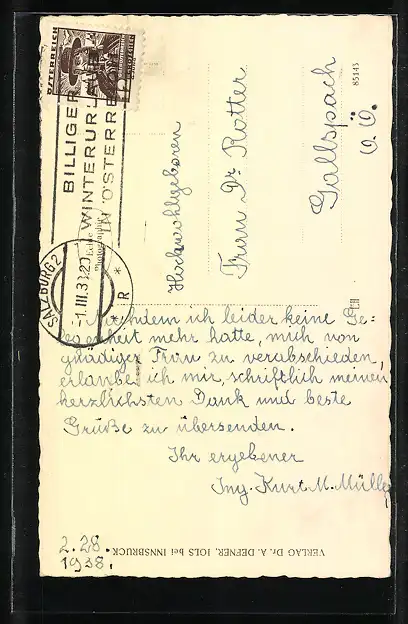 ÖSTERREICH
BILLIGER
WINTERURLAUB
IN ÖSTERREICH
SALZBURG 2
-1.III.38
* R
Echte
Photographie
85143
Hochwohlgeboren
Frau Dr. Rotter
Gallspach
O.Ö.
Nachdem ich leider keine Ge=
legenheit mehr hatte, mich von
gnädiger Frau zu verabschieden,
erlaube ich mir, schriftlich meinen
herzlichsten Dank und beste
Grüße zu übersenden.
Ihr ergebener
Ing. Kurt M. Müller
2.28.
1938.
VERLAG Dr. A. DEFNER, IGLS bei INNSBRUCK.